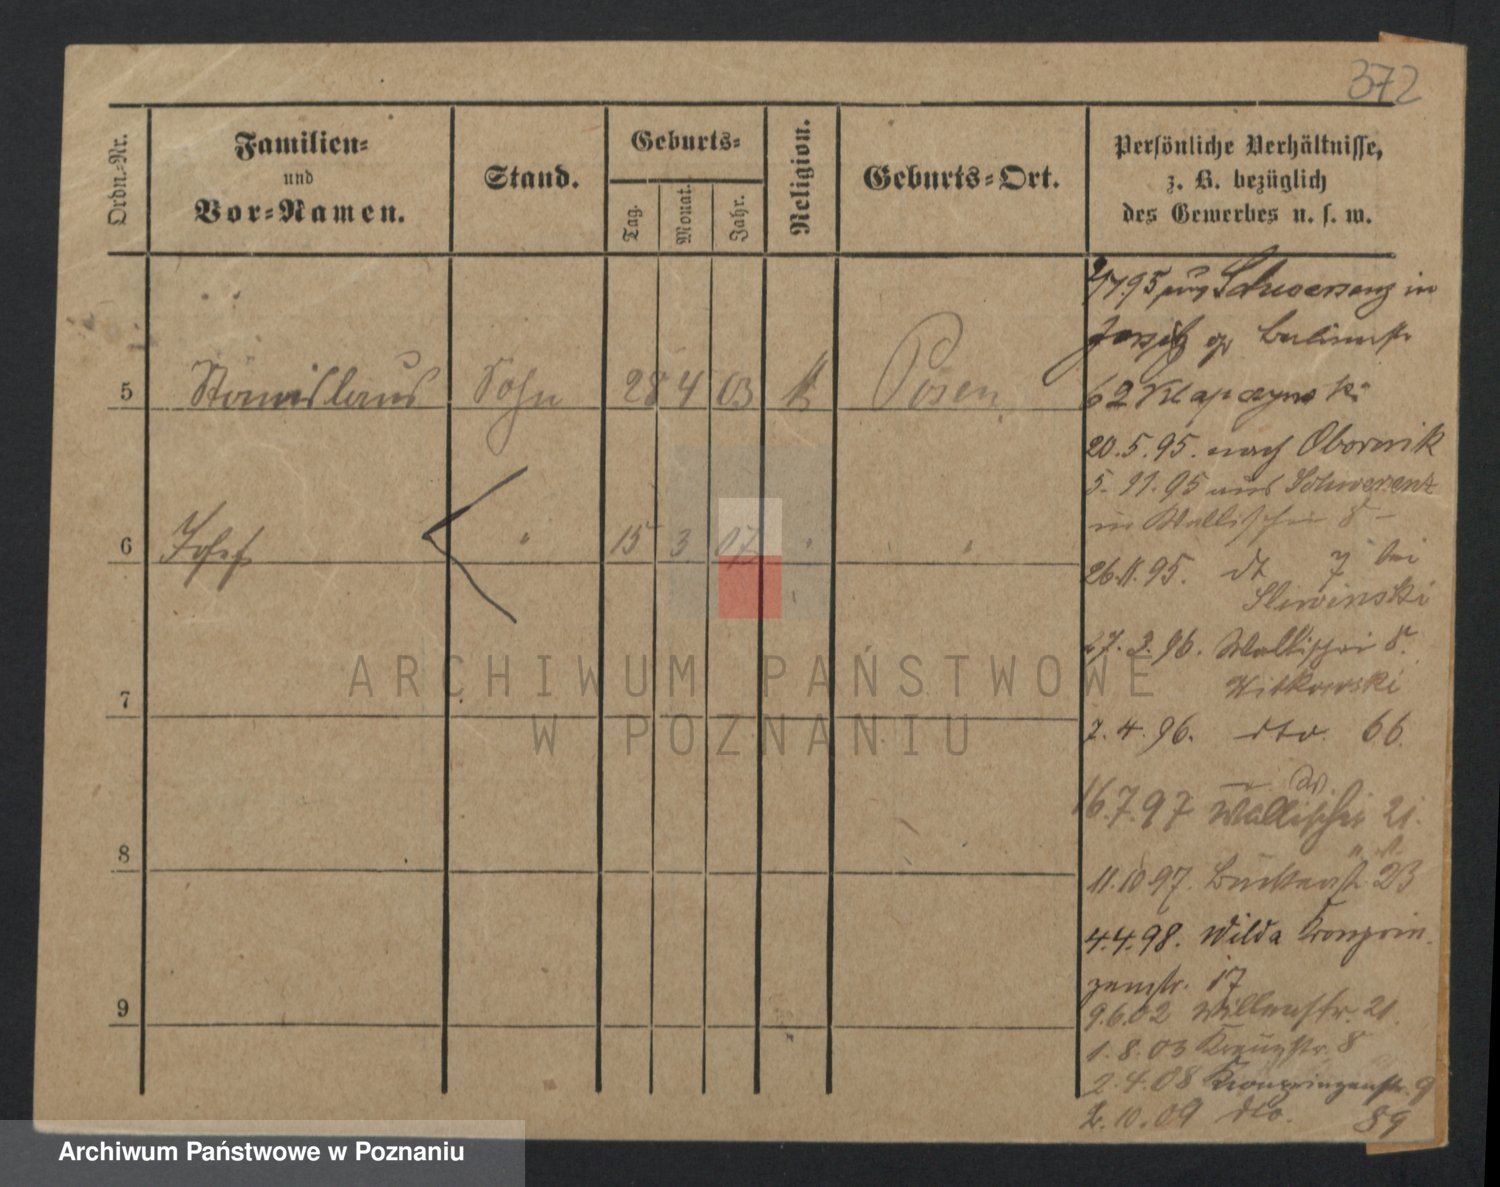 372
Ordn.-Nr.
Familien-
und
Vor-Namen.
Stand.
Geburts-
Tag.
Monat.
Jahr.
Religion.
Geburts-Ort.
Persönliche Verhältnisse,
z. B. bezüglich
des Gewerbes u. s. w.
5 Stanislaus Sohn 28 4 03 k Posen
6 Josef " 15 3 07 " "
7
8
9
Schwersenz in
62 Klapczynski
20.5.95. nach Obornik
5.11.95 aus Schwersenz
in Wallischei 8
26.11.95. dt 7 bei
Sliwinski
27.3.96. Wallischei 8.
Witkowski
7.4.96. dto. 66.
16.7.97 Wallischei 21.
11.10.97. 23
4.4.98. Wilda Kronprin-
zenstr. 17
9.6.02 21.
1.8.03 Kreuzstr. 8
2.4.08 Kronprinzenstr. 9
2.10.09 dto. 89
ARCHIWUM PAŃSTWOWE
W POZNANIU
Archiwum Państwowe w Poznaniu